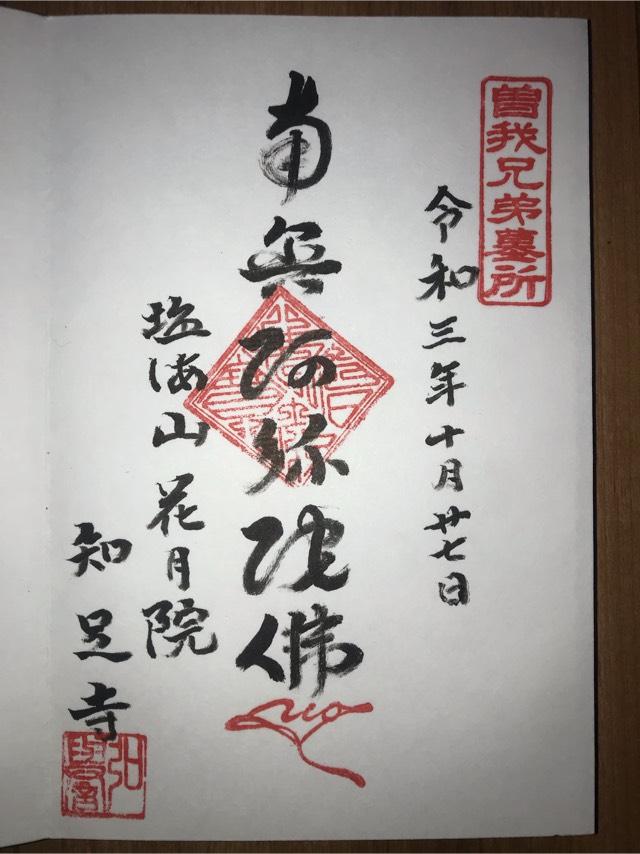 曽我兄弟墓所
令和三年十月廿七日
南無阿弥陀佛
塩海山花月院
知足寺